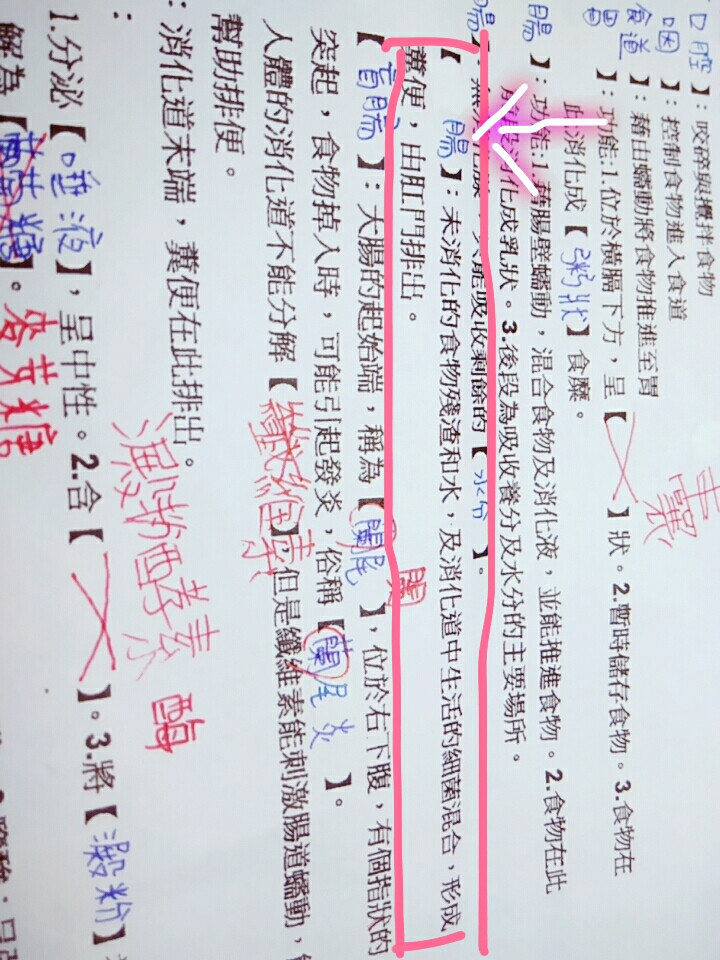 口腔】：咬碎與攪拌食物
咽】：控制食物進入食道
食道】：藉由蠕動將食物推進至胃
胃】：功能：1.位於橫膈下方，呈【 】狀。2.暫時儲存食物。3.食物在
囊
此消化成【粥狀】食糜。
腸】：功能：1.藉腸壁蠕動，混合食物及消化液，並能推進食物。2.食物在此
消化成乳狀。3.後段為吸收養分及水分的主要場所。
腸】
能吸收剩餘的【水分】。
【 腸】：未消化的食物殘渣和水，及消化道中生活的細菌混合，形成
糞便，由肛門排出。
闌
【盲腸】：大腸的起始端，稱為【闌尾】，位於右下腹，有個指狀的
突起，食物掉入時，可能引起發炎，俗稱【蘭尾炎】。
人體的消化道不能分解【纖維素】，但是纖維素能刺激腸道蠕動，
幫助排便。
：消化道末端，糞便在此排出。
澱粉酵素 酶
1.分泌【唾液】，呈中性。2.含【 】。3.將【澱粉】
解為【葡萄糖】。
麥芽糖